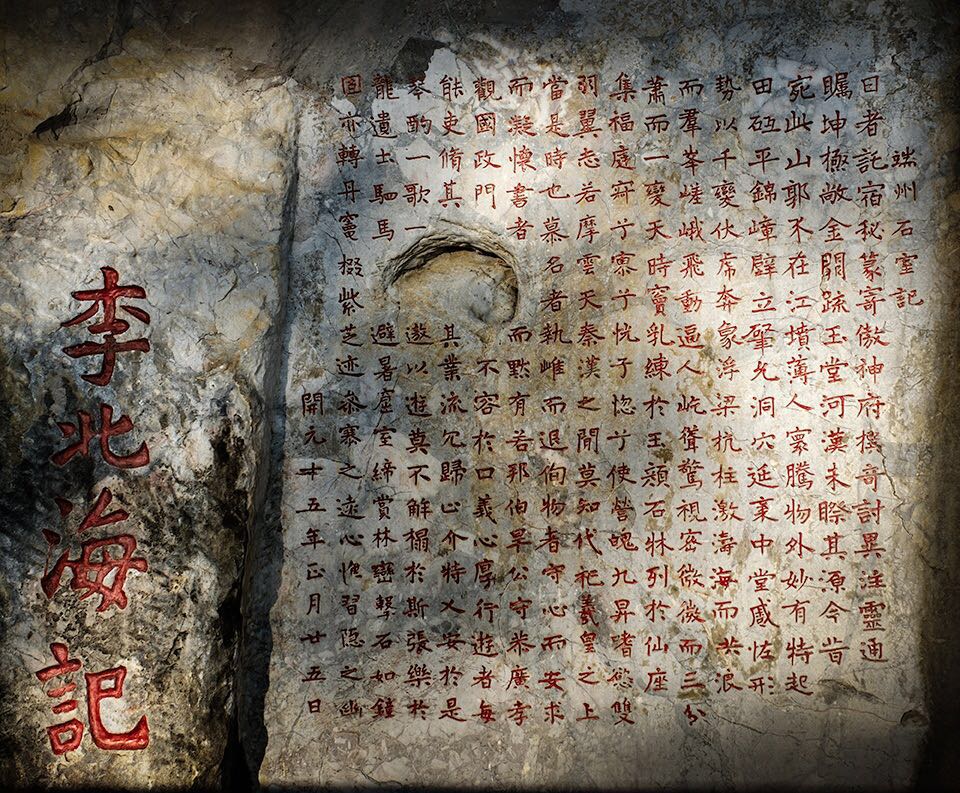 端州石室記
日者託宿秘篆寄傲神府撲奇討異注靈通
矚坤極敞金閞疏玉堂河漢未睽其源今昔
宛此山郭不在江墳薄人寰騰物外妙有特起
田砥平錦嶂壁立肇允洞穴延袤中堂感怪形
勢以千變伏虎奔象浮梁抗柱激濤海而洪浪
而羣峯嵯峨飛動逼人屹聳驚視密微微而三分
蕭而一變天時竇乳練於玉潁石牀列於仙座
集福庭寂兮寥兮恍兮惚兮使營魄九昇嗜慾雙
弱翼志若摩雲天秦漢之間莫知代祀羲皇之上
當是時也慕名者執雌而退徇物者守心而安求
而凝懷書者而默有若邦伯畢公守恭廣孝
觀國政門不容於口義心厚行遊者每
能吏脩其其業流冗歸止介特乂安於是
琴酌一歌一遨以遊莫不解榻於斯張樂於
龍遺土駟馬避暑窟室締賞林巒擊石如鐘
圓亦轉丹竈掇紫芝迹參寥之遠心愧習隐之幽
開元十五年正月廿五日
李北海記